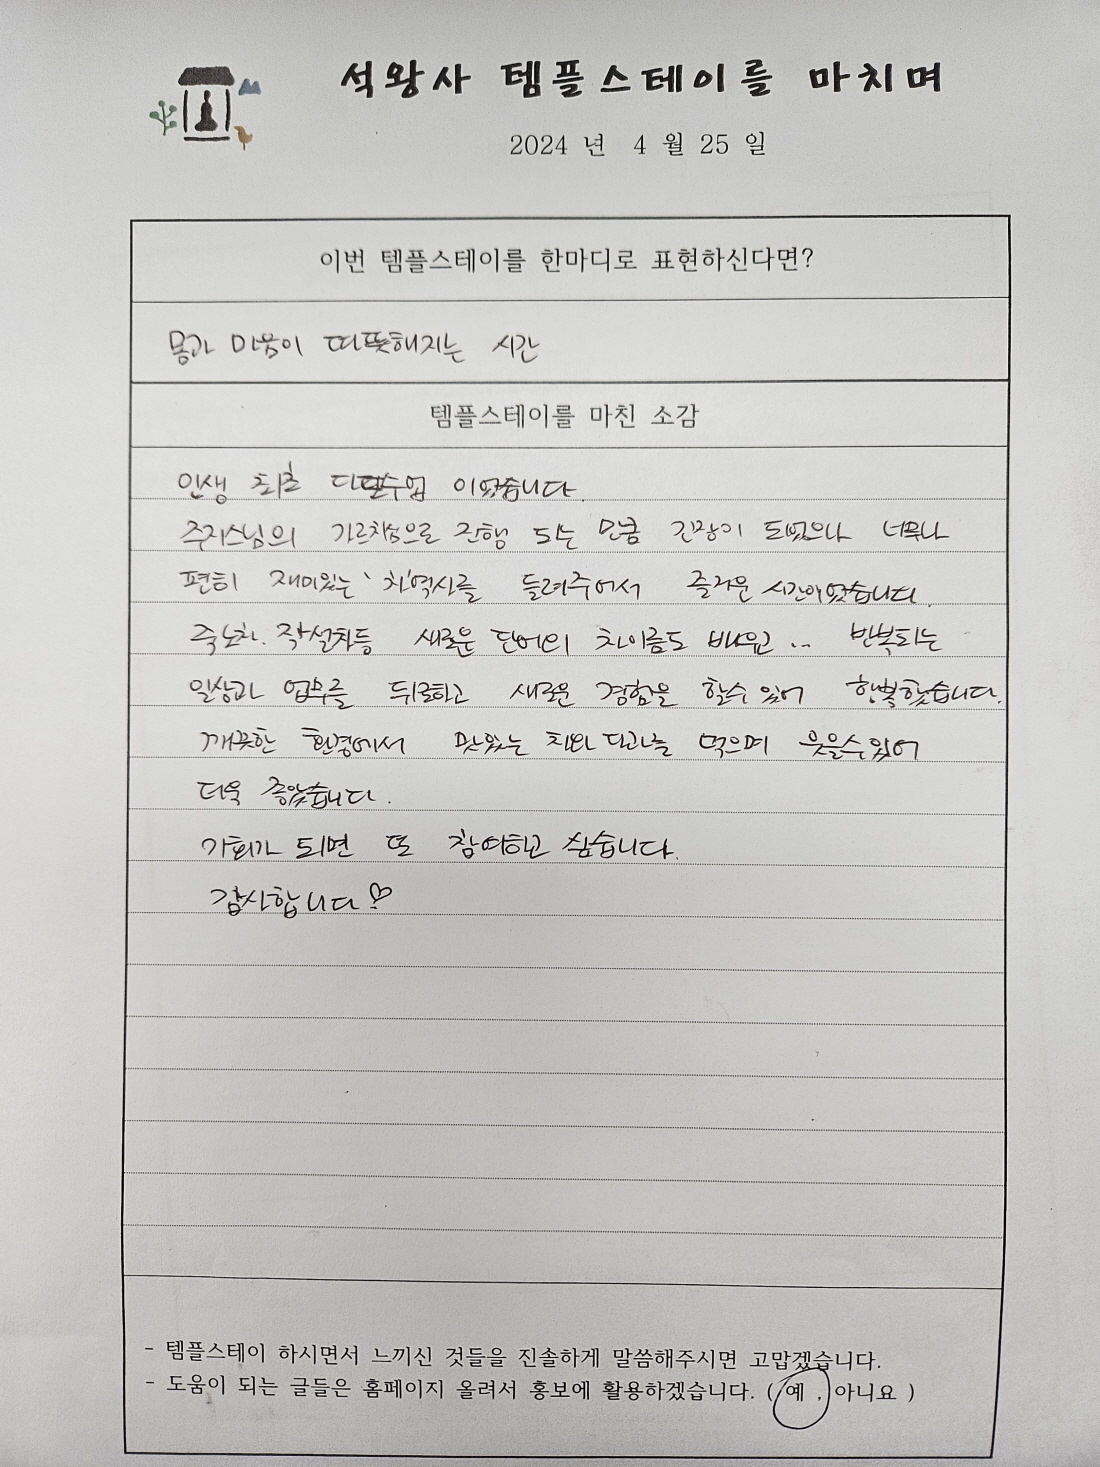 석왕사 템플스테이를 마치며
2024 년 4 월 25 일
이번 템플스테이를 한마디로 표현하신다면?
몸과 마음이 따뜻해지는 시간
템플스테이를 마친 소감
인생 최초 다도수업 이었습니다.
주지스님의 가르침으로 진행 되는 만큼 긴장이 되었으나 너무나
편히 재미있는 '차'역사를 들려주어서 즐거운 시간이었습니다.
죽노차. 작설차등 새로운 단어의 차이름도 배우고 ...  반복되는
일상과 업무를 뒤로하고 새로운 경험을 할수 있어 행복했습니다.
깨끗한 환경에서 맛있는 차와 다과를 먹으며 웃을수있어
더욱 좋았습니다.
기회가 되면 또 참여하고 싶습니다.
감사합니다♡
- 템플스테이 하시면서 느끼신 것들을 진솔하게 말씀해주시면 고맙겠습니다.
- 도움이 되는 글들은 홈페이지 올려서 홍보에 활용하겠습니다. ( 예 , 아니요 )